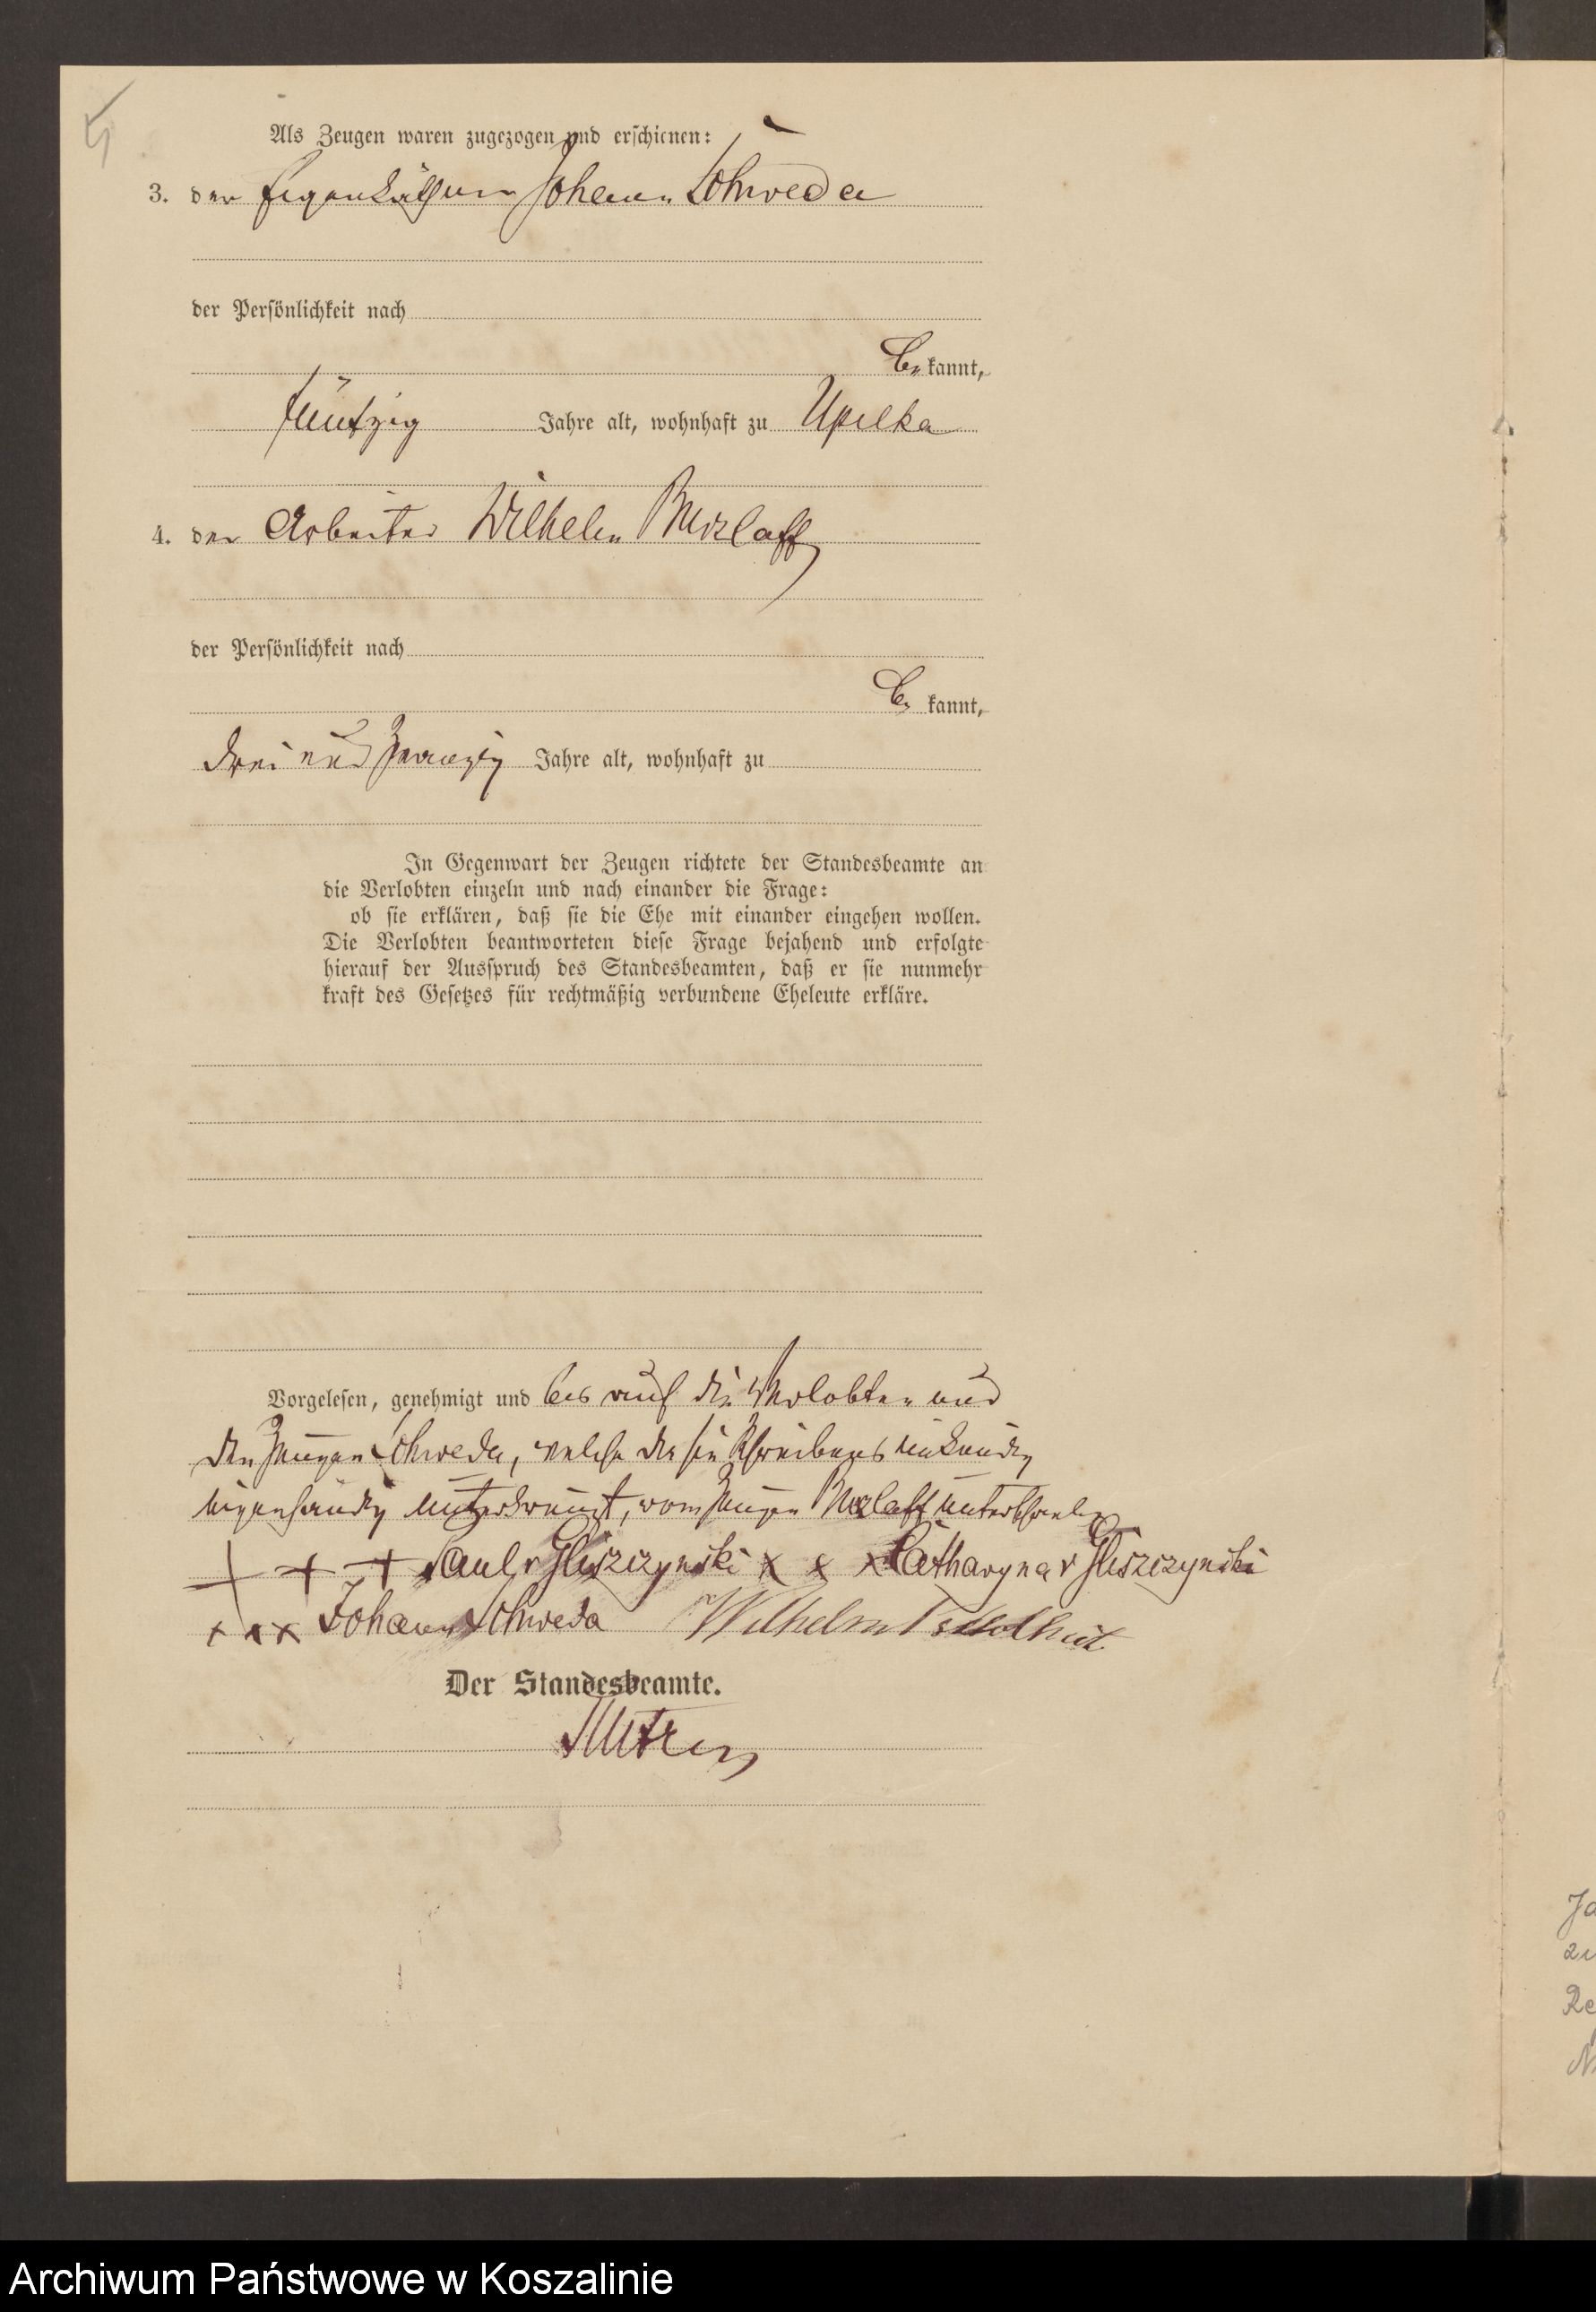 Als Zeugen waren zugezogen und erschienen:
3. der Eigenkäthner Johann Schweda
der Persönlichkeit nach
be kannt,
fünfzig Jahre alt, wohnhaft zu Upilka
4. der Arbeiter Wilhelm
der Persönlichkeit nach
be kannt,
drei und zwanzig Jahre alt, wohnhaft zu
In Gegenwart der Zeugen richtete der Standesbeamte an
die Verlobten einzeln und nach einander die Frage:
ob sie erklären, daß sie die Ehe mit einander eingehen wollen.
Die Verlobten beantworteten diese Frage bejahend und erfolgte
hierauf der Ausspruch des Standesbeamten, daß er sie nunmehr
kraft des Gesetzes für rechtmäßig verbundene Eheleute erkläre.
Vorgelesen, genehmigt und bis auf die Verlobten und
den Zeugen Schweda, welche des Schreibens unkundig
eigenhändig unterkreuzt, vom Zeugen unterschrieben
+ + + Paul v Gliszczynski x x x Catharyna v Gliszczynski
x x x Johann Schweda Wilhelm
Der Standesbeamte.
Ja
zu
Re
N
Archiwum Państwowe w Koszalinie